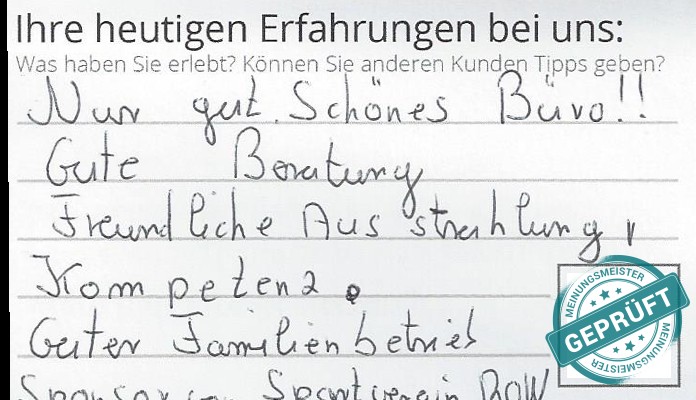 Ihre heutigen Erfahrungen bei uns:
Was haben Sie erlebt? Können Sie anderen Kunden Tipps geben?
Nur gut. Schönes Büro!!
Gute Beratung
Freundliche Ausstrahlung,
Kompetenz.
Guter Familienbetrieb
Sponsor von Sportverein ROW
MEINUNGSMEISTER
GEPRÜFT
MEINUNGSMEISTER